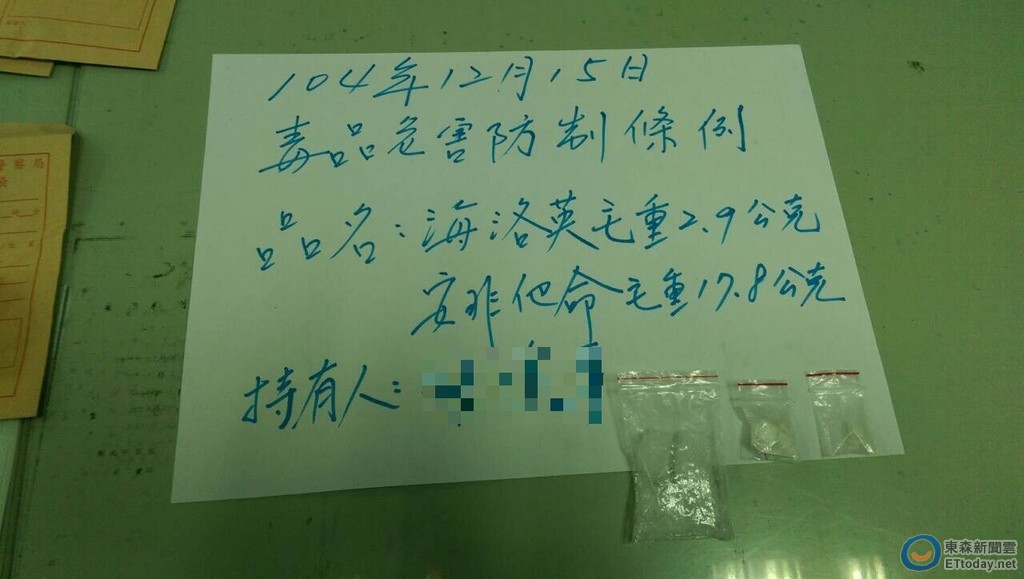 104年12月15日
毒品危害防制條例
品名：海洛英毛重2.9公克
安非他命毛重17.8公克
持有人：
警察局
東森新聞雲
ETtoday.net